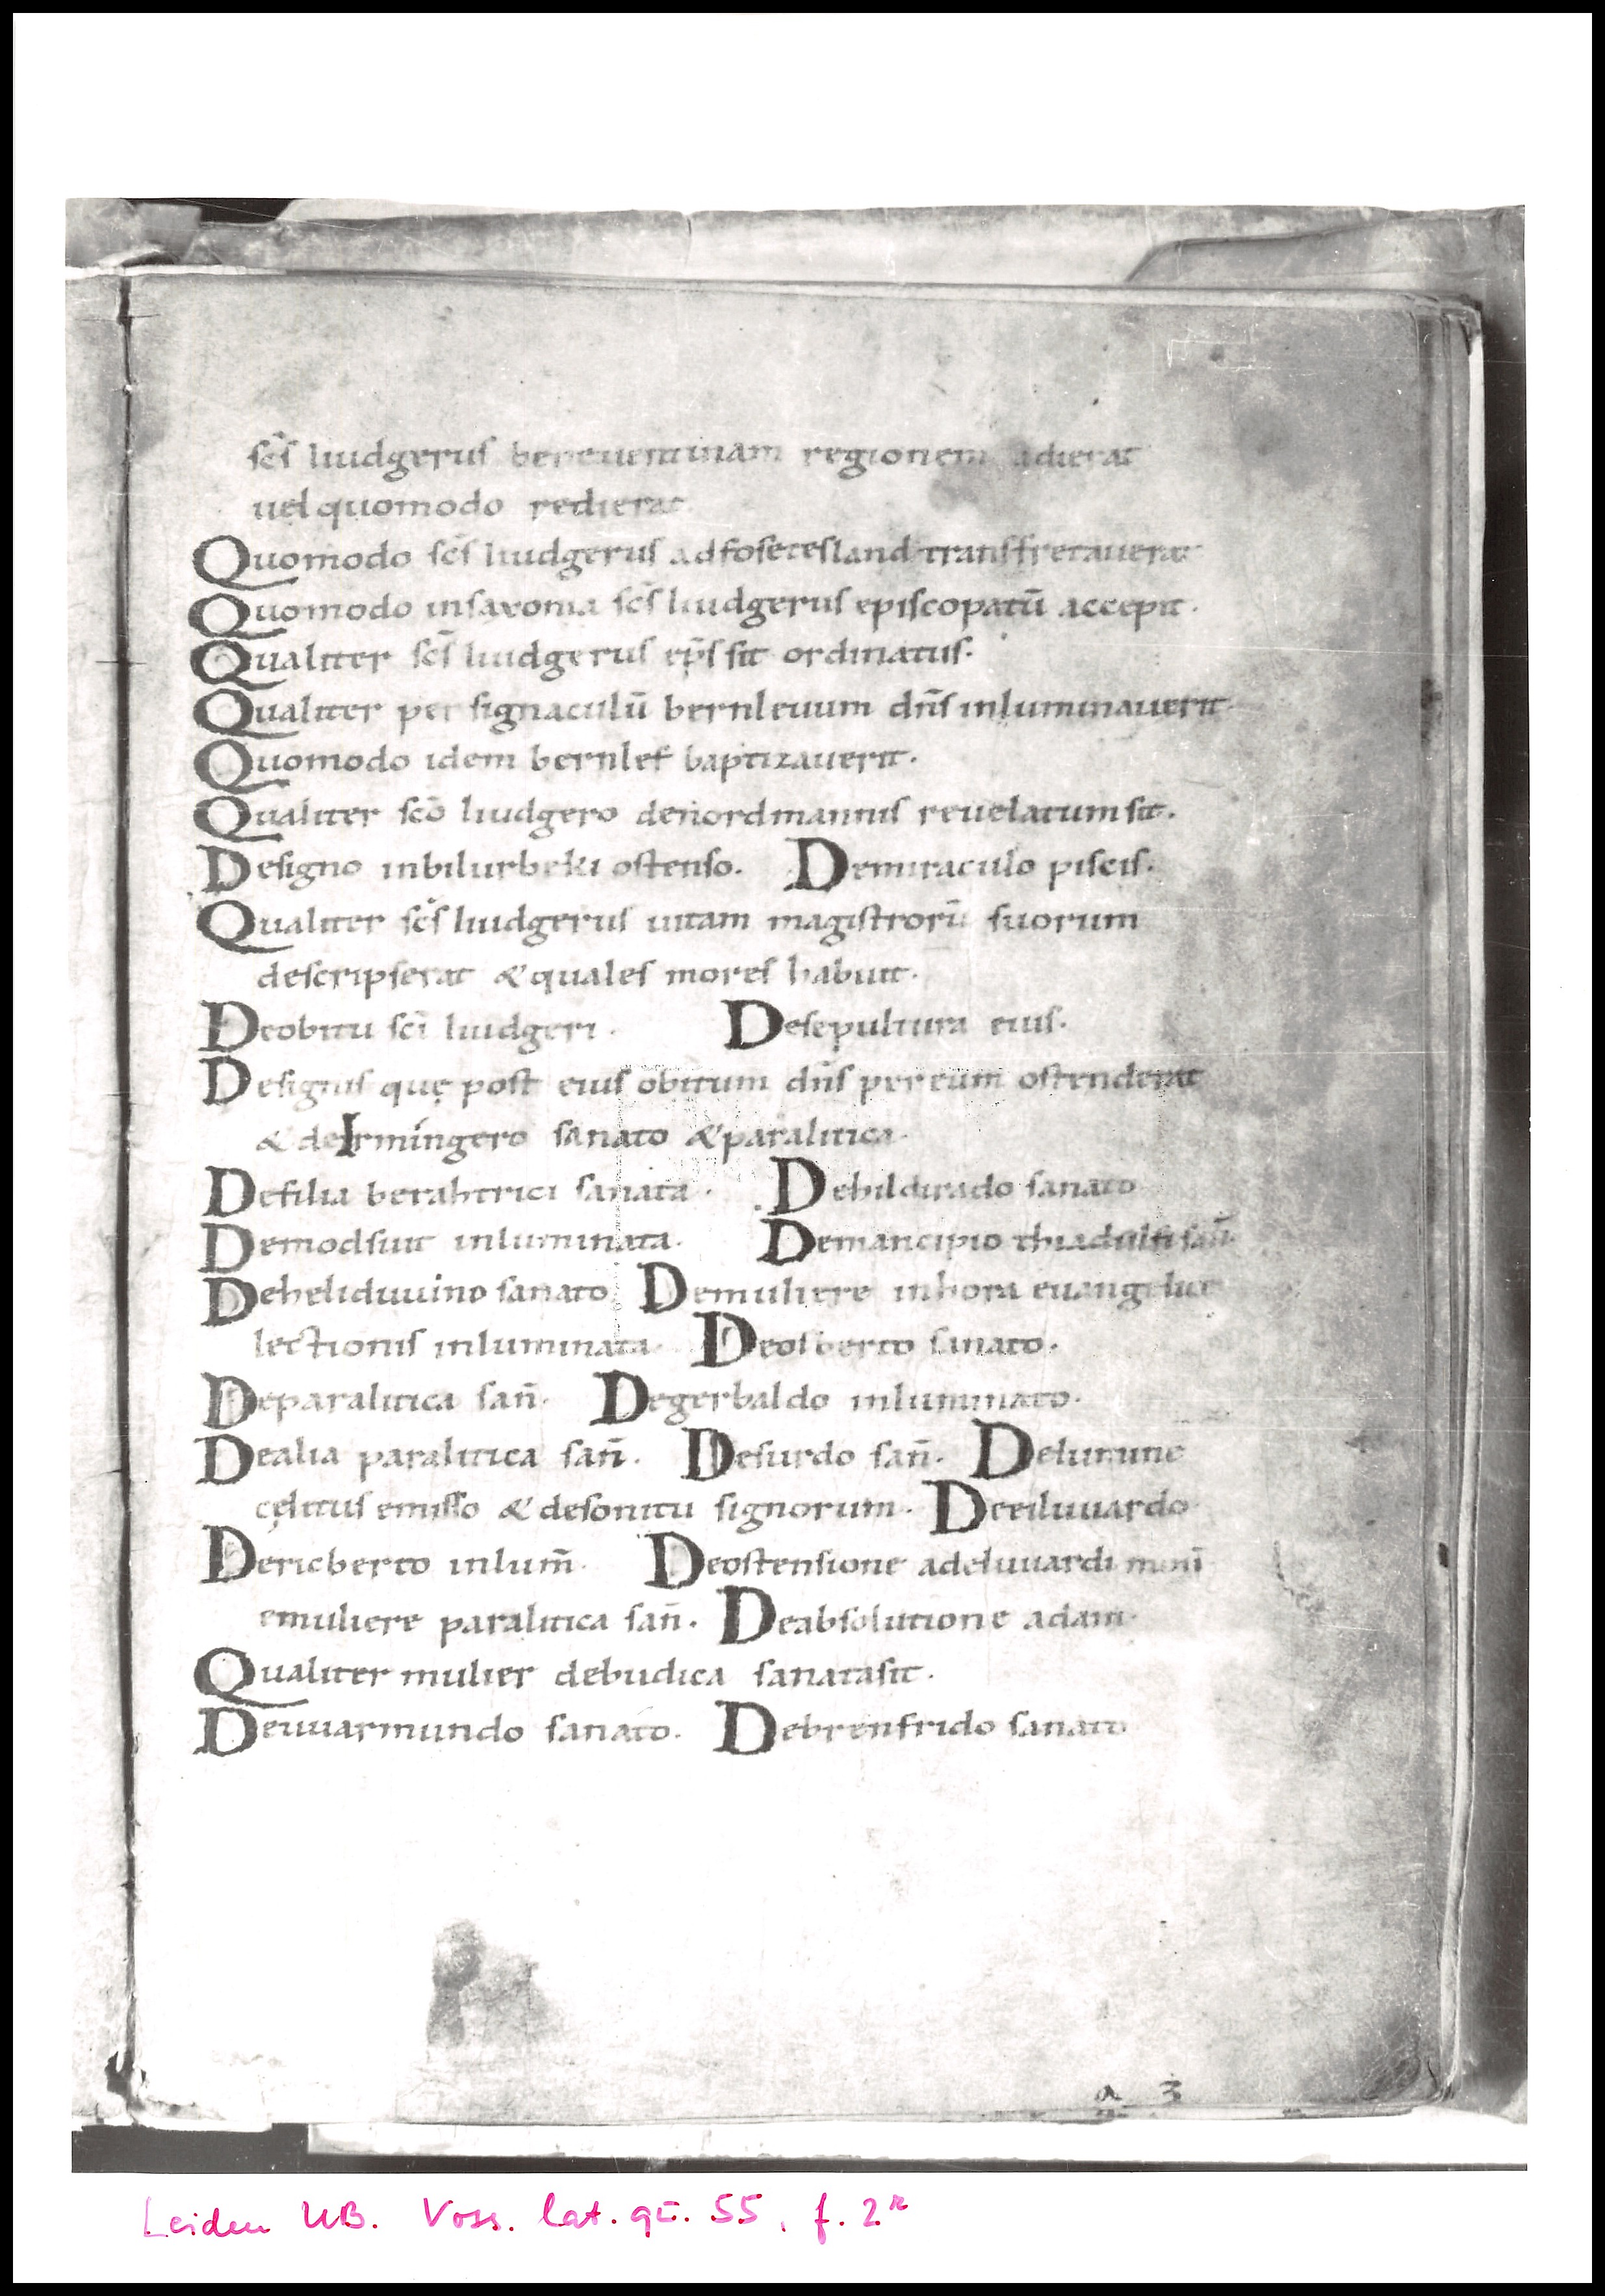 scs̄ liudgerus beneuentinam regionem adierat
uel quomodo redierat.
Quomodo scs̄ liudgerus adfosetesland transfretauerat
Quomodo insaxonia scs̄ liudgerus episcopatū accepit.
Qualiter scs̄ liudgerus ep̄s sit ordinatus.
Qualiter per signaculū bernleuum dn̄s inluminauerit.
Quomodo idem bernlef baptizauerit.
Qualiter scō liudgero denordmannis reuelatum sit.
Designo inbilurbeki ostenso. Demiraculo piscis.
Qualiter scs̄ liudgerus uitam magistrorū suorum
descripserat & quales mores habuit.
Deobitu scī liudgeri. Desepultura eius.
Designis quę post eius obitum dn̄s per eum ostenderat
& deIrmíngero sanato & paralitica.
Defilia berahtrici sanata. Dehildirado sanato
Demodsuit inluminata. Demancipio thiadulfi san̄.
Deheliduuino sanato. Demuliere inhora euangelicę
lectionis inluminata. Deosberto sanato.
Deparalitica san̄. Degerbaldo inluminato.
Dealia paralitica san̄. Desurdo san̄. Delumine
cęlitus emisso & desonitu signorum. Dereiluuardo
Dericberto inlum̄. Deostensione adeluuardi
emuliere paralitica san̄. Deabsolutione adam.
Qualiter mulier debudica sanatasit.
Deuuarmundo sanato. Debrenfrido sanato
a 3
Leiden UB. Voss. lat. qu. 55, f. 2r